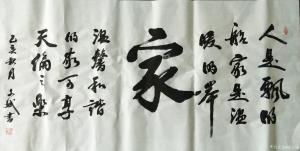 人是飘的
船家是温
暖的岸
家
温馨和谐
的家可享
天伦之乐
己亥秋月